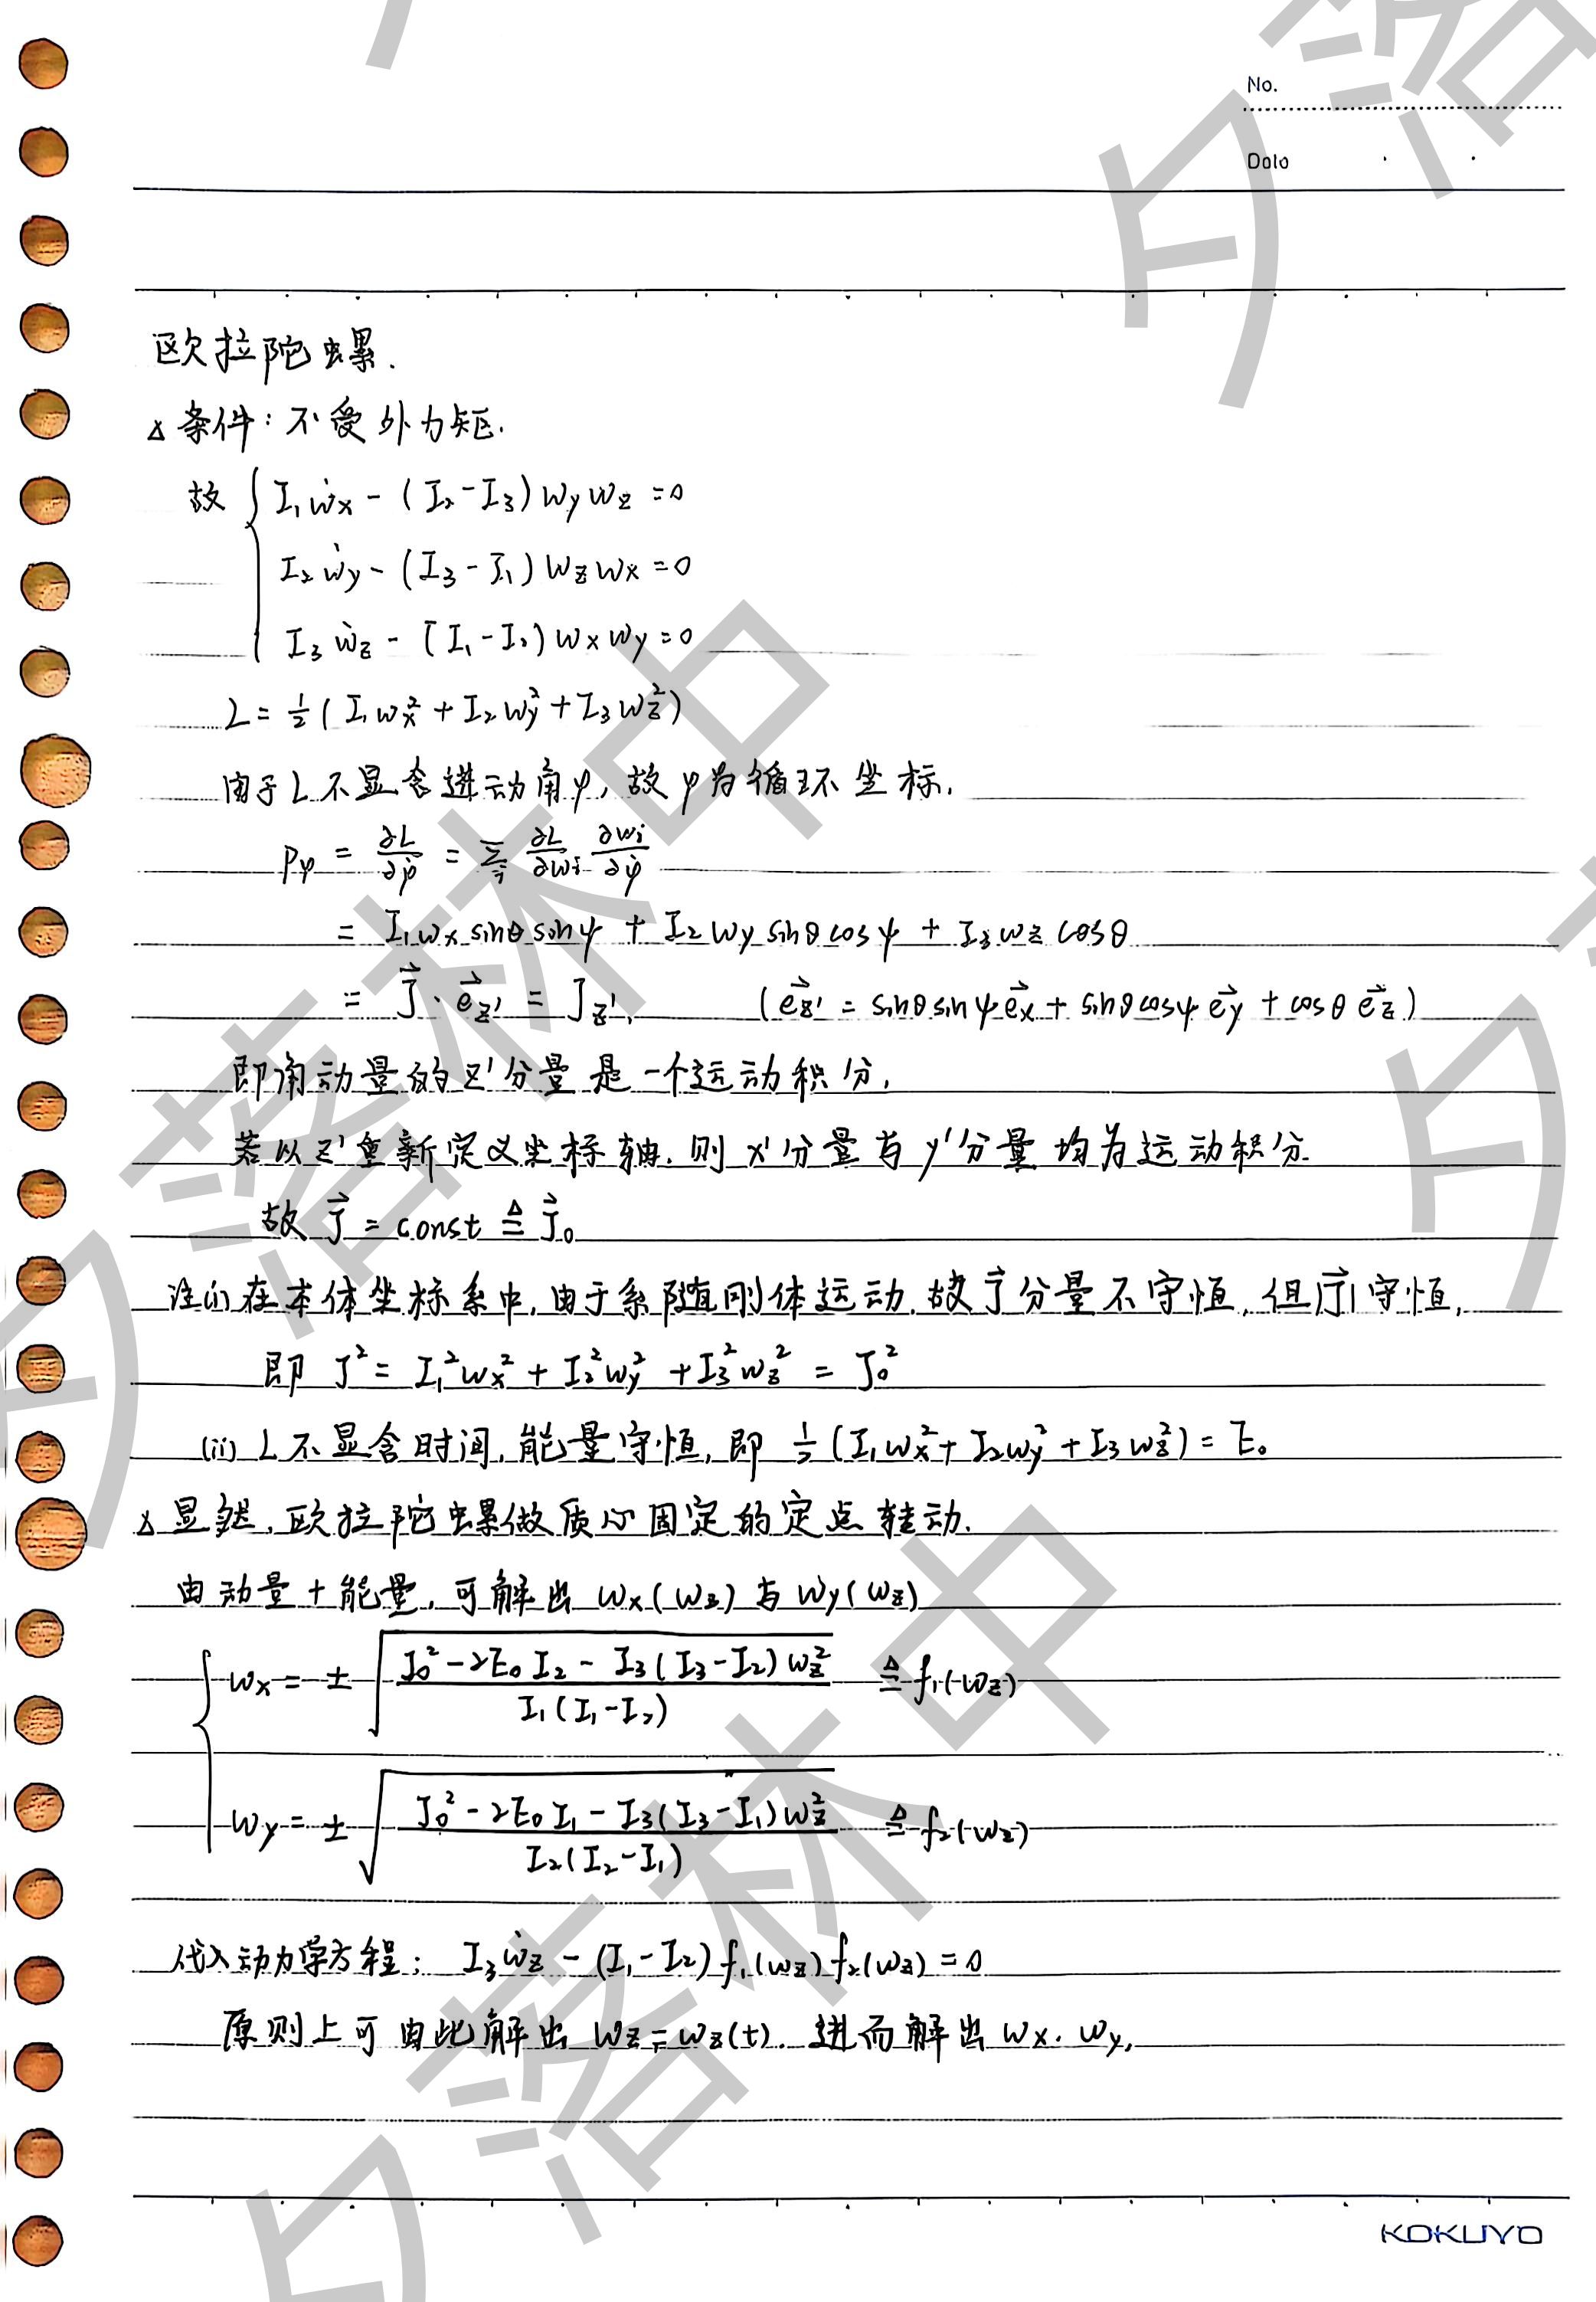 No.
Date
欧拉陀螺.
△条件：不受外力矩.
故 { I₁ẇx - (I₂-I₃)wywz = 0
I₂ẇy - (I₃-I₁)wzwx = 0
I₃ẇz - (I₁-I₂)wxwy = 0
L = ½(I₁wx² + I₂wy² + I₃wz²)
由于L不显含进动角φ, 故φ为循环坐标.
Pφ = ∂L/∂φ̇ = Σi ∂L/∂wi ∂wi/∂φ̇
= I₁wx sinθ sinψ + I₂wy sinθ cosψ + I₃wz cosθ
= J⃗·e⃗z' = Jz', (e⃗z' = sinθ sinψ e⃗x + sinθ cosψ e⃗y + cosθ e⃗z)
即角动量的z'分量是一个运动积分,
若以z'重新定义坐标轴, 则x'分量与y'分量均为运动积分
故 J⃗ = const ≜ J⃗₀
注(i)在本体坐标系中, 由于系随刚体运动, 故J⃗分量不守恒, 但|J⃗|守恒,
即 J² = I₁²wx² + I₂²wy² + I₃²wz² = J₀²
(ii) L不显含时间, 能量守恒, 即 ½(I₁wx² + I₂wy² + I₃wz²) = E₀
△显然, 欧拉陀螺做质心固定的定点转动.
由动量+能量, 可解出 wx(wz) 与 wy(wz)
{ wx = ± √((J₀² - 2E₀I₂ - I₃(I₃-I₂)wz²) / (I₁(I₁-I₂))) ≜ f₁(wz)
wy = ± √((J₀² - 2E₀I₁ - I₃(I₃-I₁)wz²) / (I₂(I₂-I₁))) ≜ f₂(wz)
代入动力学方程: I₃ẇz - (I₁-I₂)f₁(wz)f₂(wz) = 0
原则上可由此解出 wz = wz(t). 进而解出 wx. wy,
KOKUYO
夕落林中
夕落林中